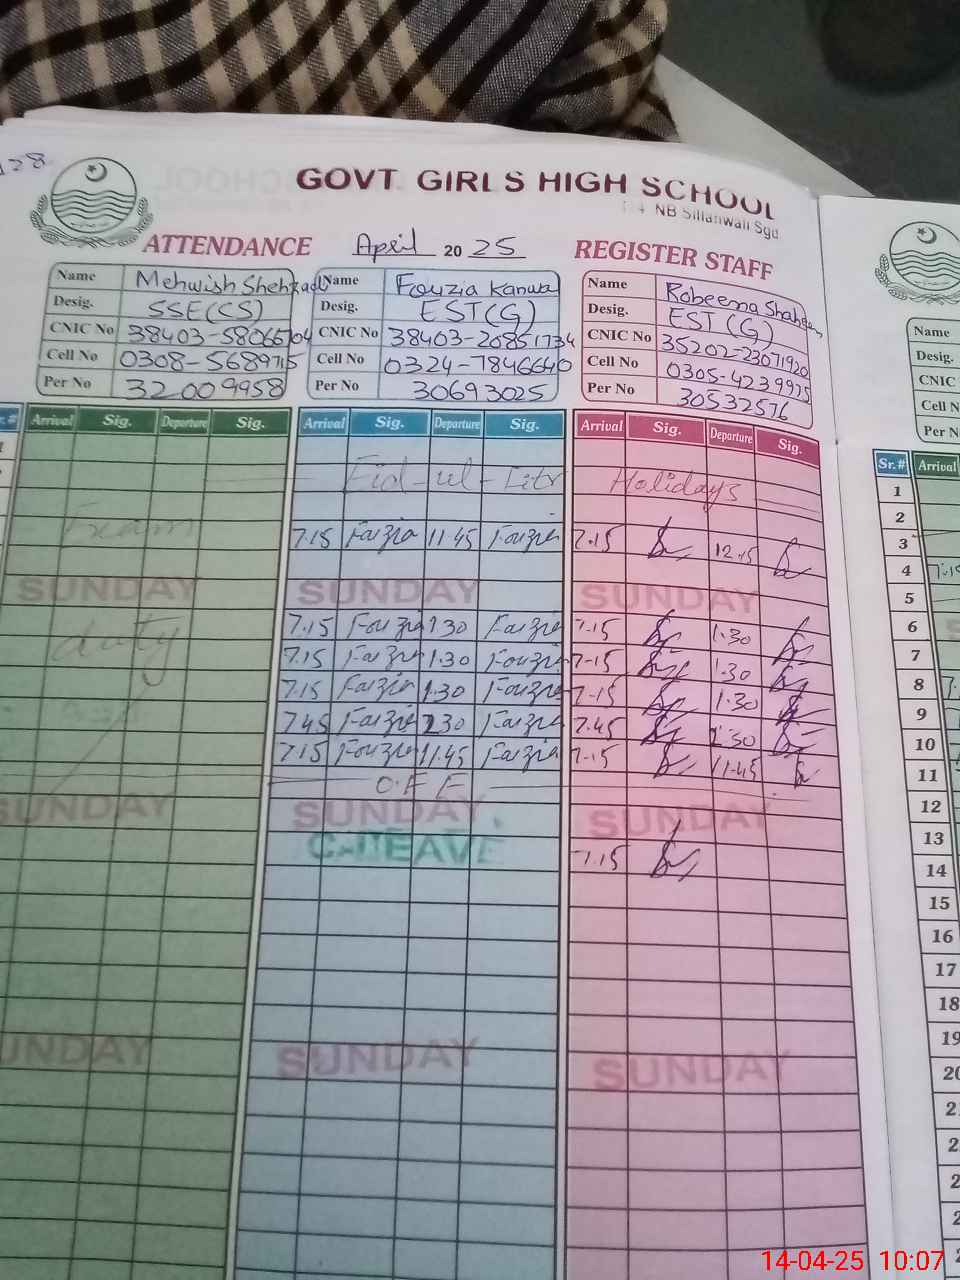 128
GOVT GIRLS HIGH SCHOOL
NB Sillanwali Sgd
ATTENDANCE April 2025 REGISTER STAFF
Name Mehwish Shehzadi
Desig. SSE(CS)
CNIC No 38403-5806670 4
Cell No 0308-5689715
Per No 32009958
Name Fouzia Kanwal
Desig. EST(G)
CNIC No 38403-2085173 4
Cell No 0324-7846640
Per No 30693025
Name Robeena Shaheen
Desig. EST(G)
CNIC No 35202-23071920
Cell No 0305-4239975
Per No 30532576
Name
Desig.
CNIC
Cell N
Per N
Arrival Sig. Departure Sig. Arrival Sig. Departure Sig. Arrival Sig. Departure Sig. Sr.# Arrival
1
Eid-ul-Fitr Holidays
2
Exam
3
7.15 Fouzia 11.45 Fouzia 7.15 12.15
4
SUNDAY SUNDAY SUNDAY
5
duty
7.15 Fouzia 1.30 Fouzia 7.15 1.30
6
7.15 Fouzia 1.30 Fouzia 7-15 1.30
7
7.15 Fouzia 1.30 Fouzia 7-15 1.30
8
7.45 Fouzia 2.30 Fouzia 7.45 2.30
9
7.15 Fouzia 11.45 Fouzia 7-15 11.45
10
OFF
11
SUNDAY SUNDAY SUNDAY
12
C-LEAVE
13
7.15
14
15
16
17
18
19
SUNDAY SUNDAY SUNDAY
20
14-04-25 10:07